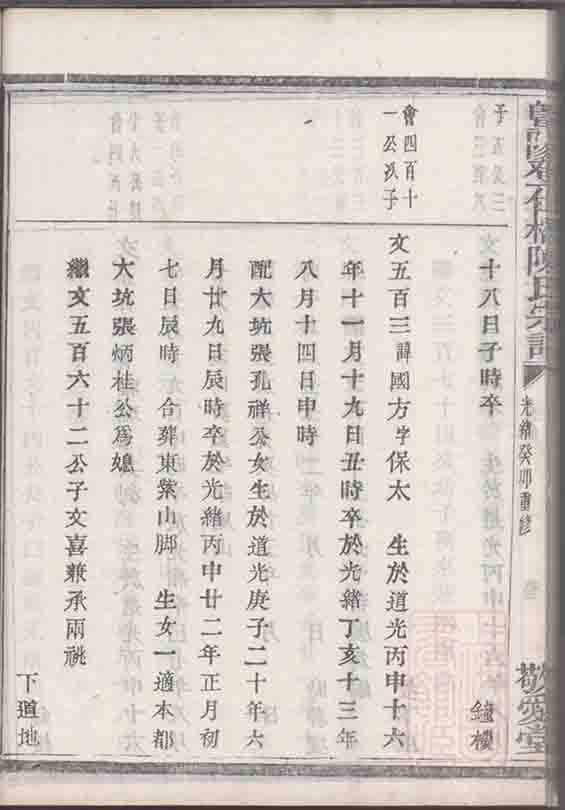 橋陳氏宗譜
光緒癸卯重修
敬愛堂
十八日子時卒
鐘樓
會四百十
一公次子
文五百三諱國方字保太 生於道光丙申十六
年十一月十九日丑時卒於光緒丁亥十三年
八月十四日申時
配大坑張孔祥公女生於道光庚子二十年六
月廿九日辰時卒於光緒丙申廿二年正月初
七日辰時 合葬東紫山脚 生女一適本都
大坑張炳桂公爲媳
繼文五百六十二公子文喜兼承兩祧
下道地